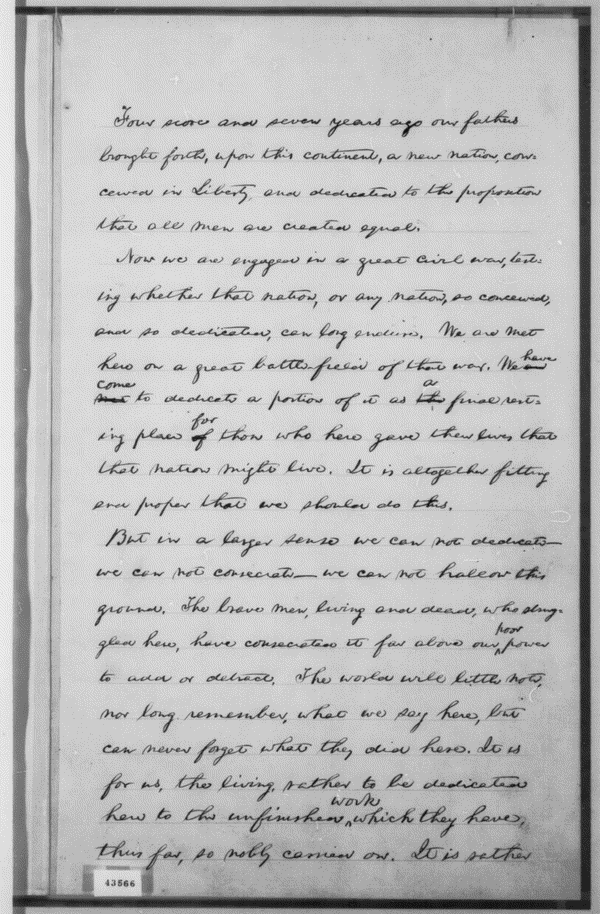 Four score and seven years ago our fathers
brought forth, upon this continent, a new nation, con-
ceived in Liberty, and dedicated to the proposition
that all men are created equal.
Now we are engaged in a great civil war, test-
ing whether that nation, or any nation, so conceived,
and so dedicated, can long endure. We are met
here on a great battle-field of that war. We have are
come met to dedicate a portion of it as a the final rest-
ing place for of those who here gave their lives that
that nation might live. It is altogether fitting
and proper that we should do this.
But in a larger sense we can not dedicate—
we can not consecrate— we can not hallow this
ground. The brave men, living and dead, who strug-
gled here, have consecrated it far above our poor power
to add or detract. The world will little note,
nor long remember, what we say here, but
can never forget what they did here. It is
for us, the living, rather to be dedicated
here to the unfinished work which they have,
thus far, so nobly carried on. It is rather
43566